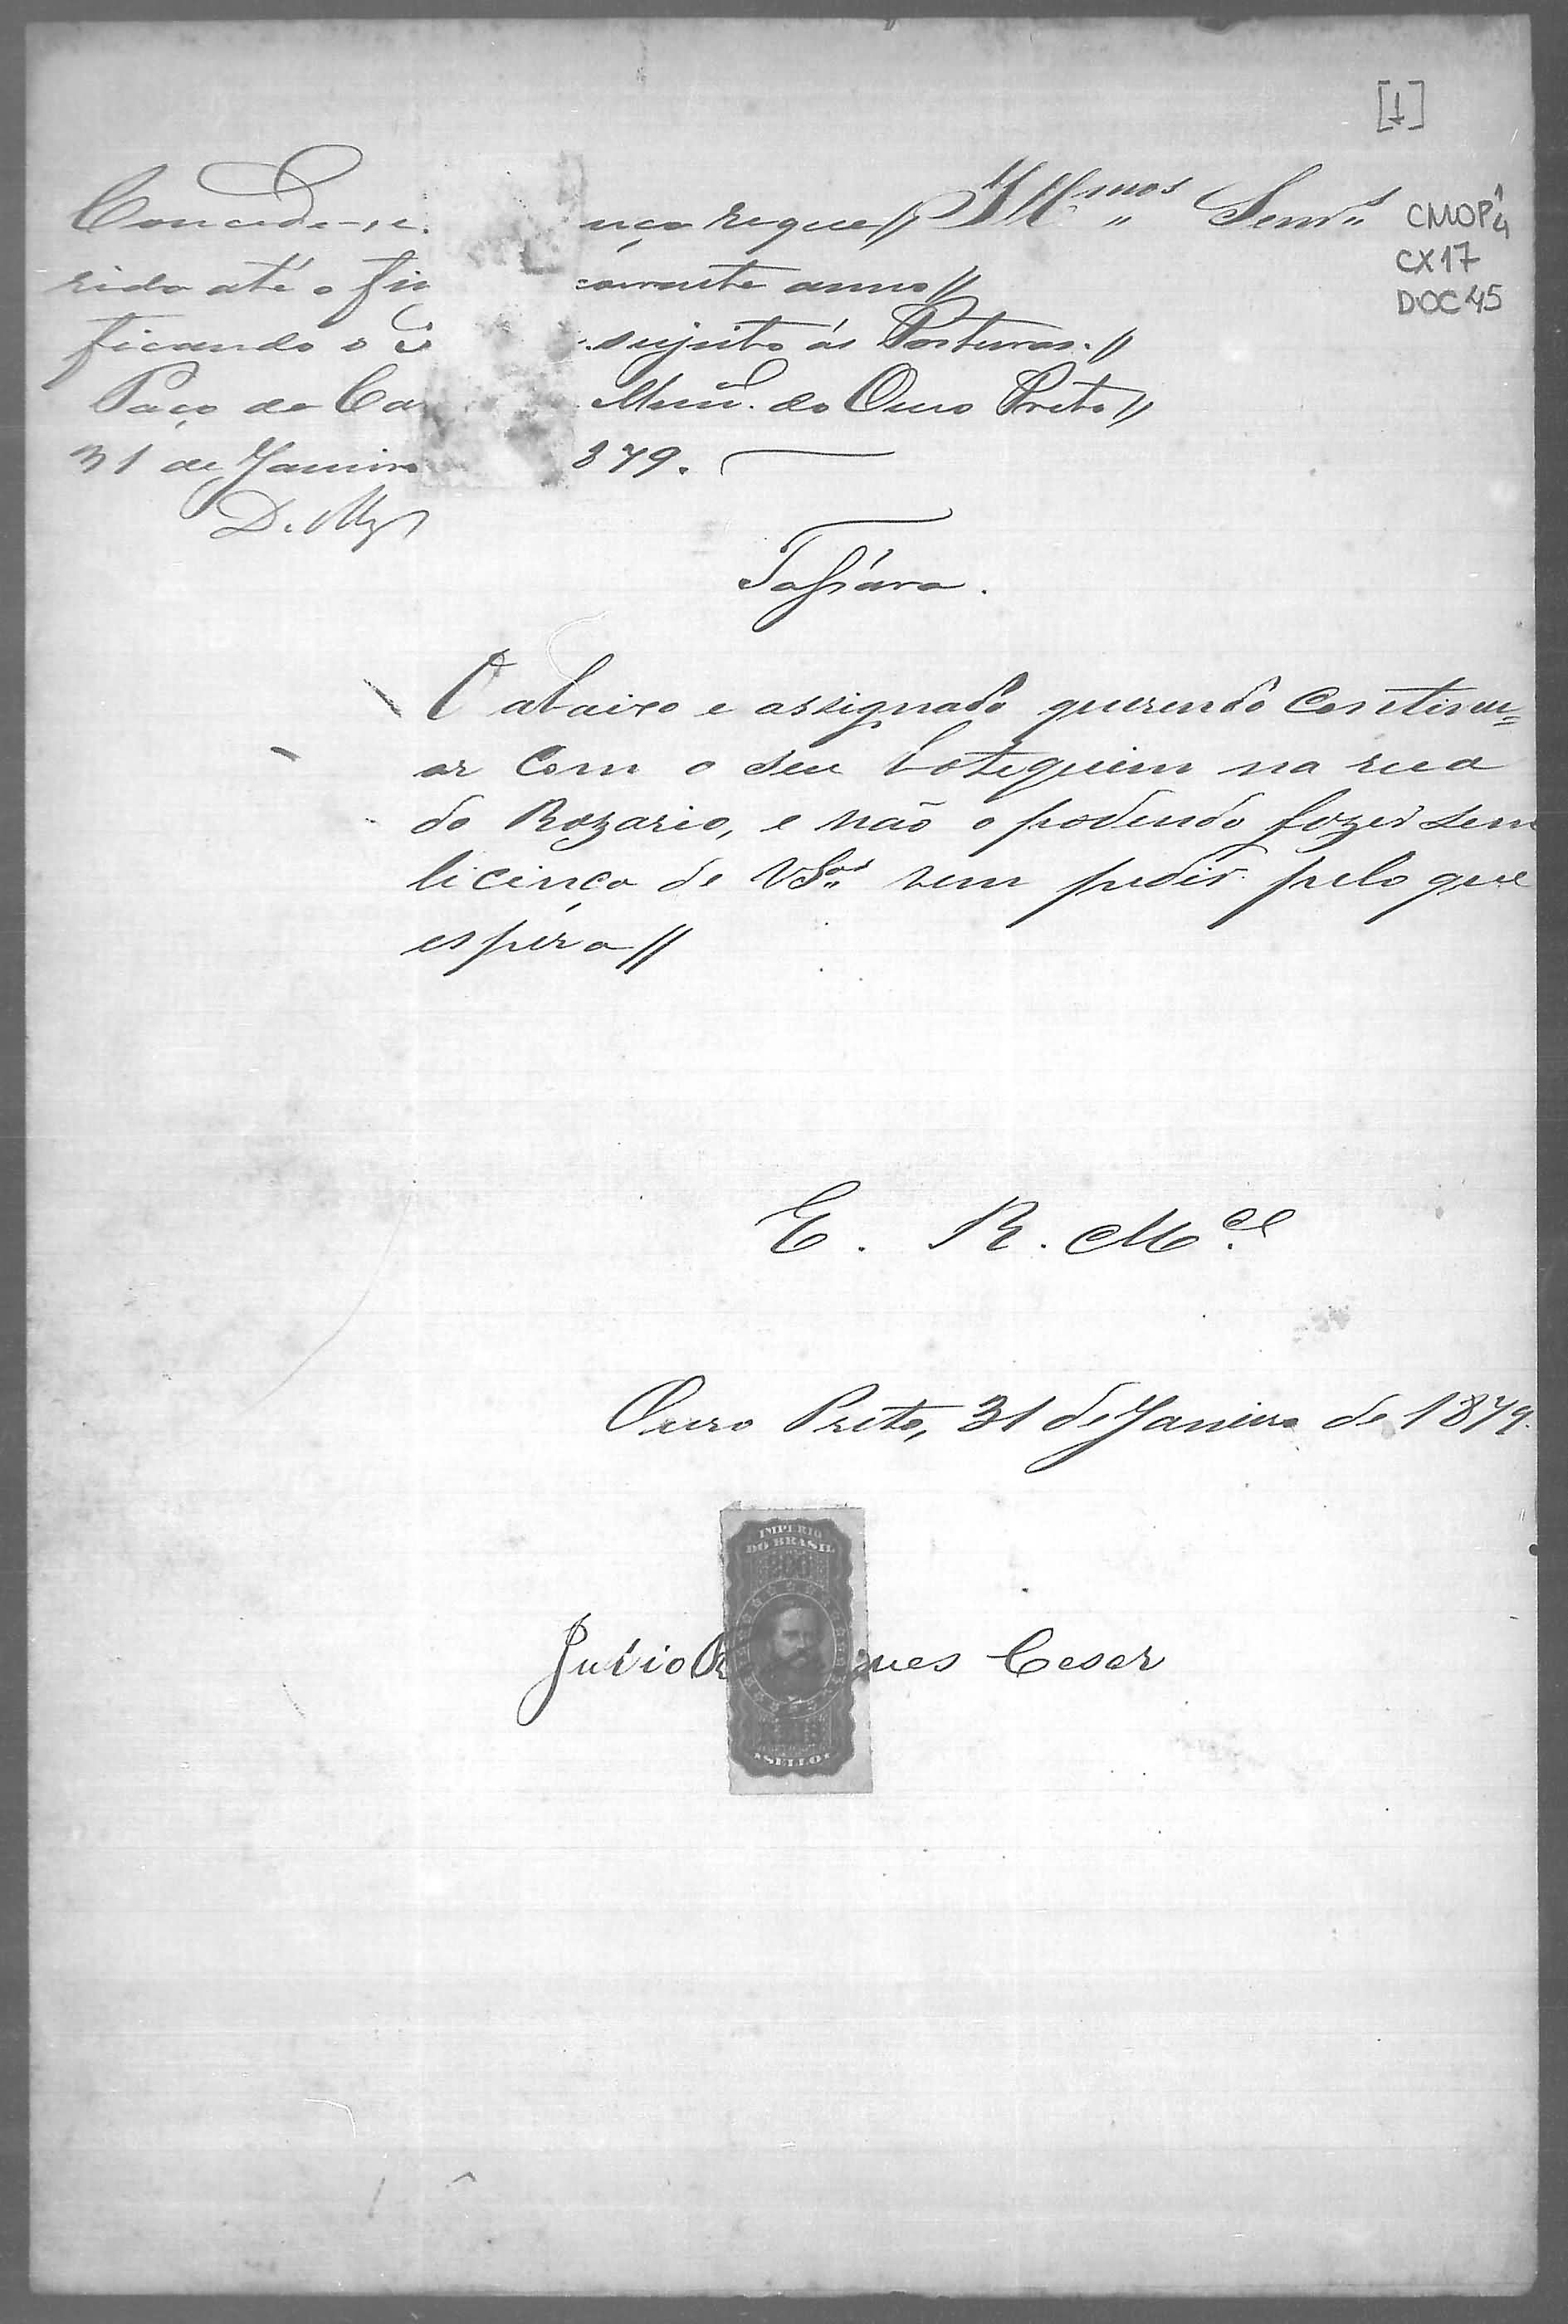 [1]
CMOP 4
CX17
DOC 45
Concede-se nça reque//
rida até o fi corrente anno//
ficando o sujeito ás Posturas.//
Paço da Ca Mun. do Ouro Preto//
31 de Janeiro 879.
Illmos Senrs
Passára.
O abaixo e assignado querendo continu=
ar com o seu botequim na rua
do Rozario, e não o podendo fazer sem
licença de VSas vem pedir pelo que
espera//
E. R. Mce
Ouro Preto, 31 de Janeiro de 1879.
IMPERIO
DO BRASIL
200
SELLO
Julio R ues Cesar